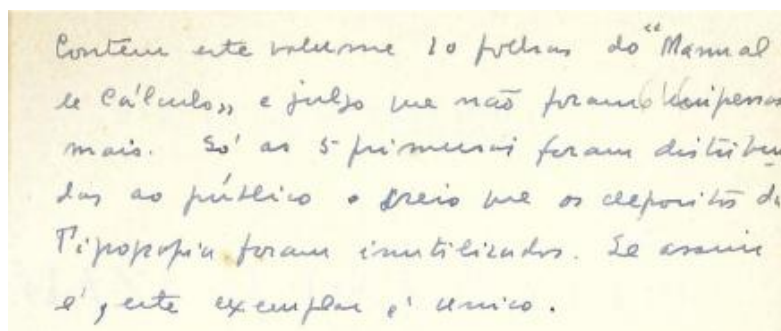 Contém este volume 10 folhas do "Manual
de Cálculo„ e julgo que não foram impressas
mais. Só as 5 primeiras foram distribui
das ao público e creio que os depositos da
Tipografia foram inutilizados. Se assim
é, este exemplar é unico.